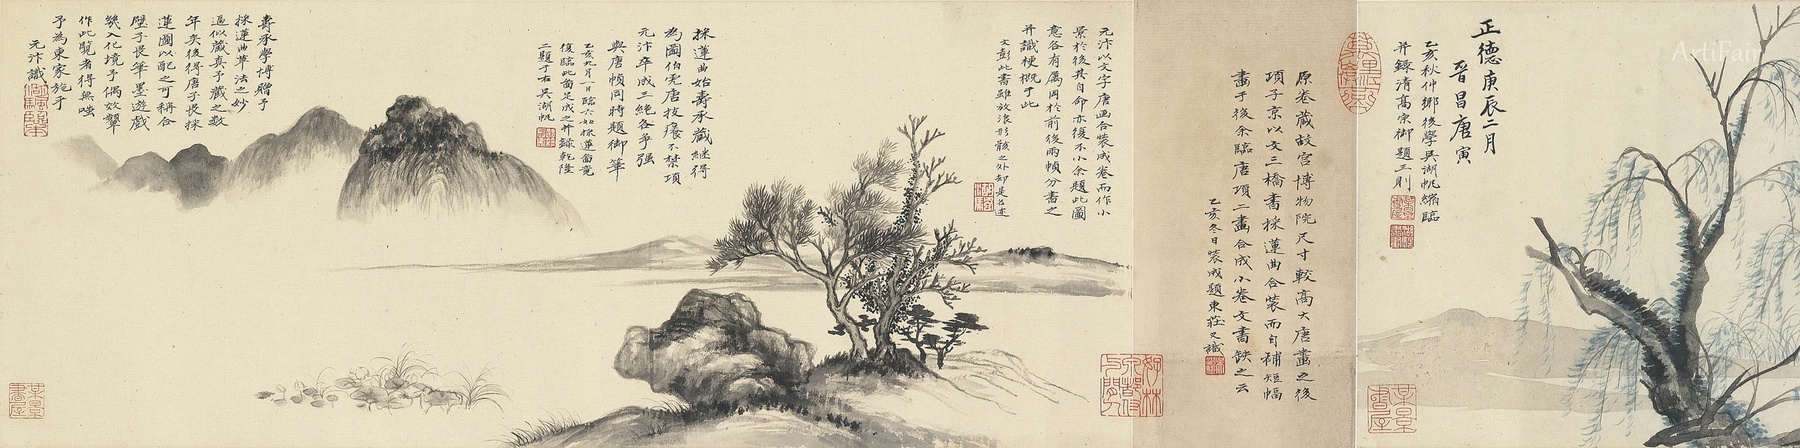 正德庚辰二月
晉昌唐寅
乙亥秋仲鄉後學吳湖帆縮臨
并錄清高宗御題三則
原卷藏故宮博物院尺寸較高大唐畫之後
項子京以文三橋書採蓮曲合裝而自補短幅
畫于後余臨唐項二畫合成小卷文書缺之云
乙亥冬日裝成題東莊又識
元汴以文字唐畫合裝成卷而作小
景於後其自命亦復不小余題此圖
意各有屬因於前後兩幀分書之
并識梗概于此
文彭此書雖放浪形骸之外却是名迹
採蓮曲始壽承藏繼得
為圖伯寅唐技癢不禁項
元汴卒成三絕各爭強
與唐幀同時題御筆
乙亥九月一日臨六如採蓮圖竟
復臨此圖足成之并錄乾隆
二題于右吳湖帆
壽承學博贈予
採蓮曲草法之妙
逼似藏真予藏之數
年矣後得唐子畏採
蓮圖以配之可稱合
壁子畏筆墨遊戲
幾入化境予偶效顰
作此覽者得無嗤
予為東家施乎
元汴識
ArtiFair